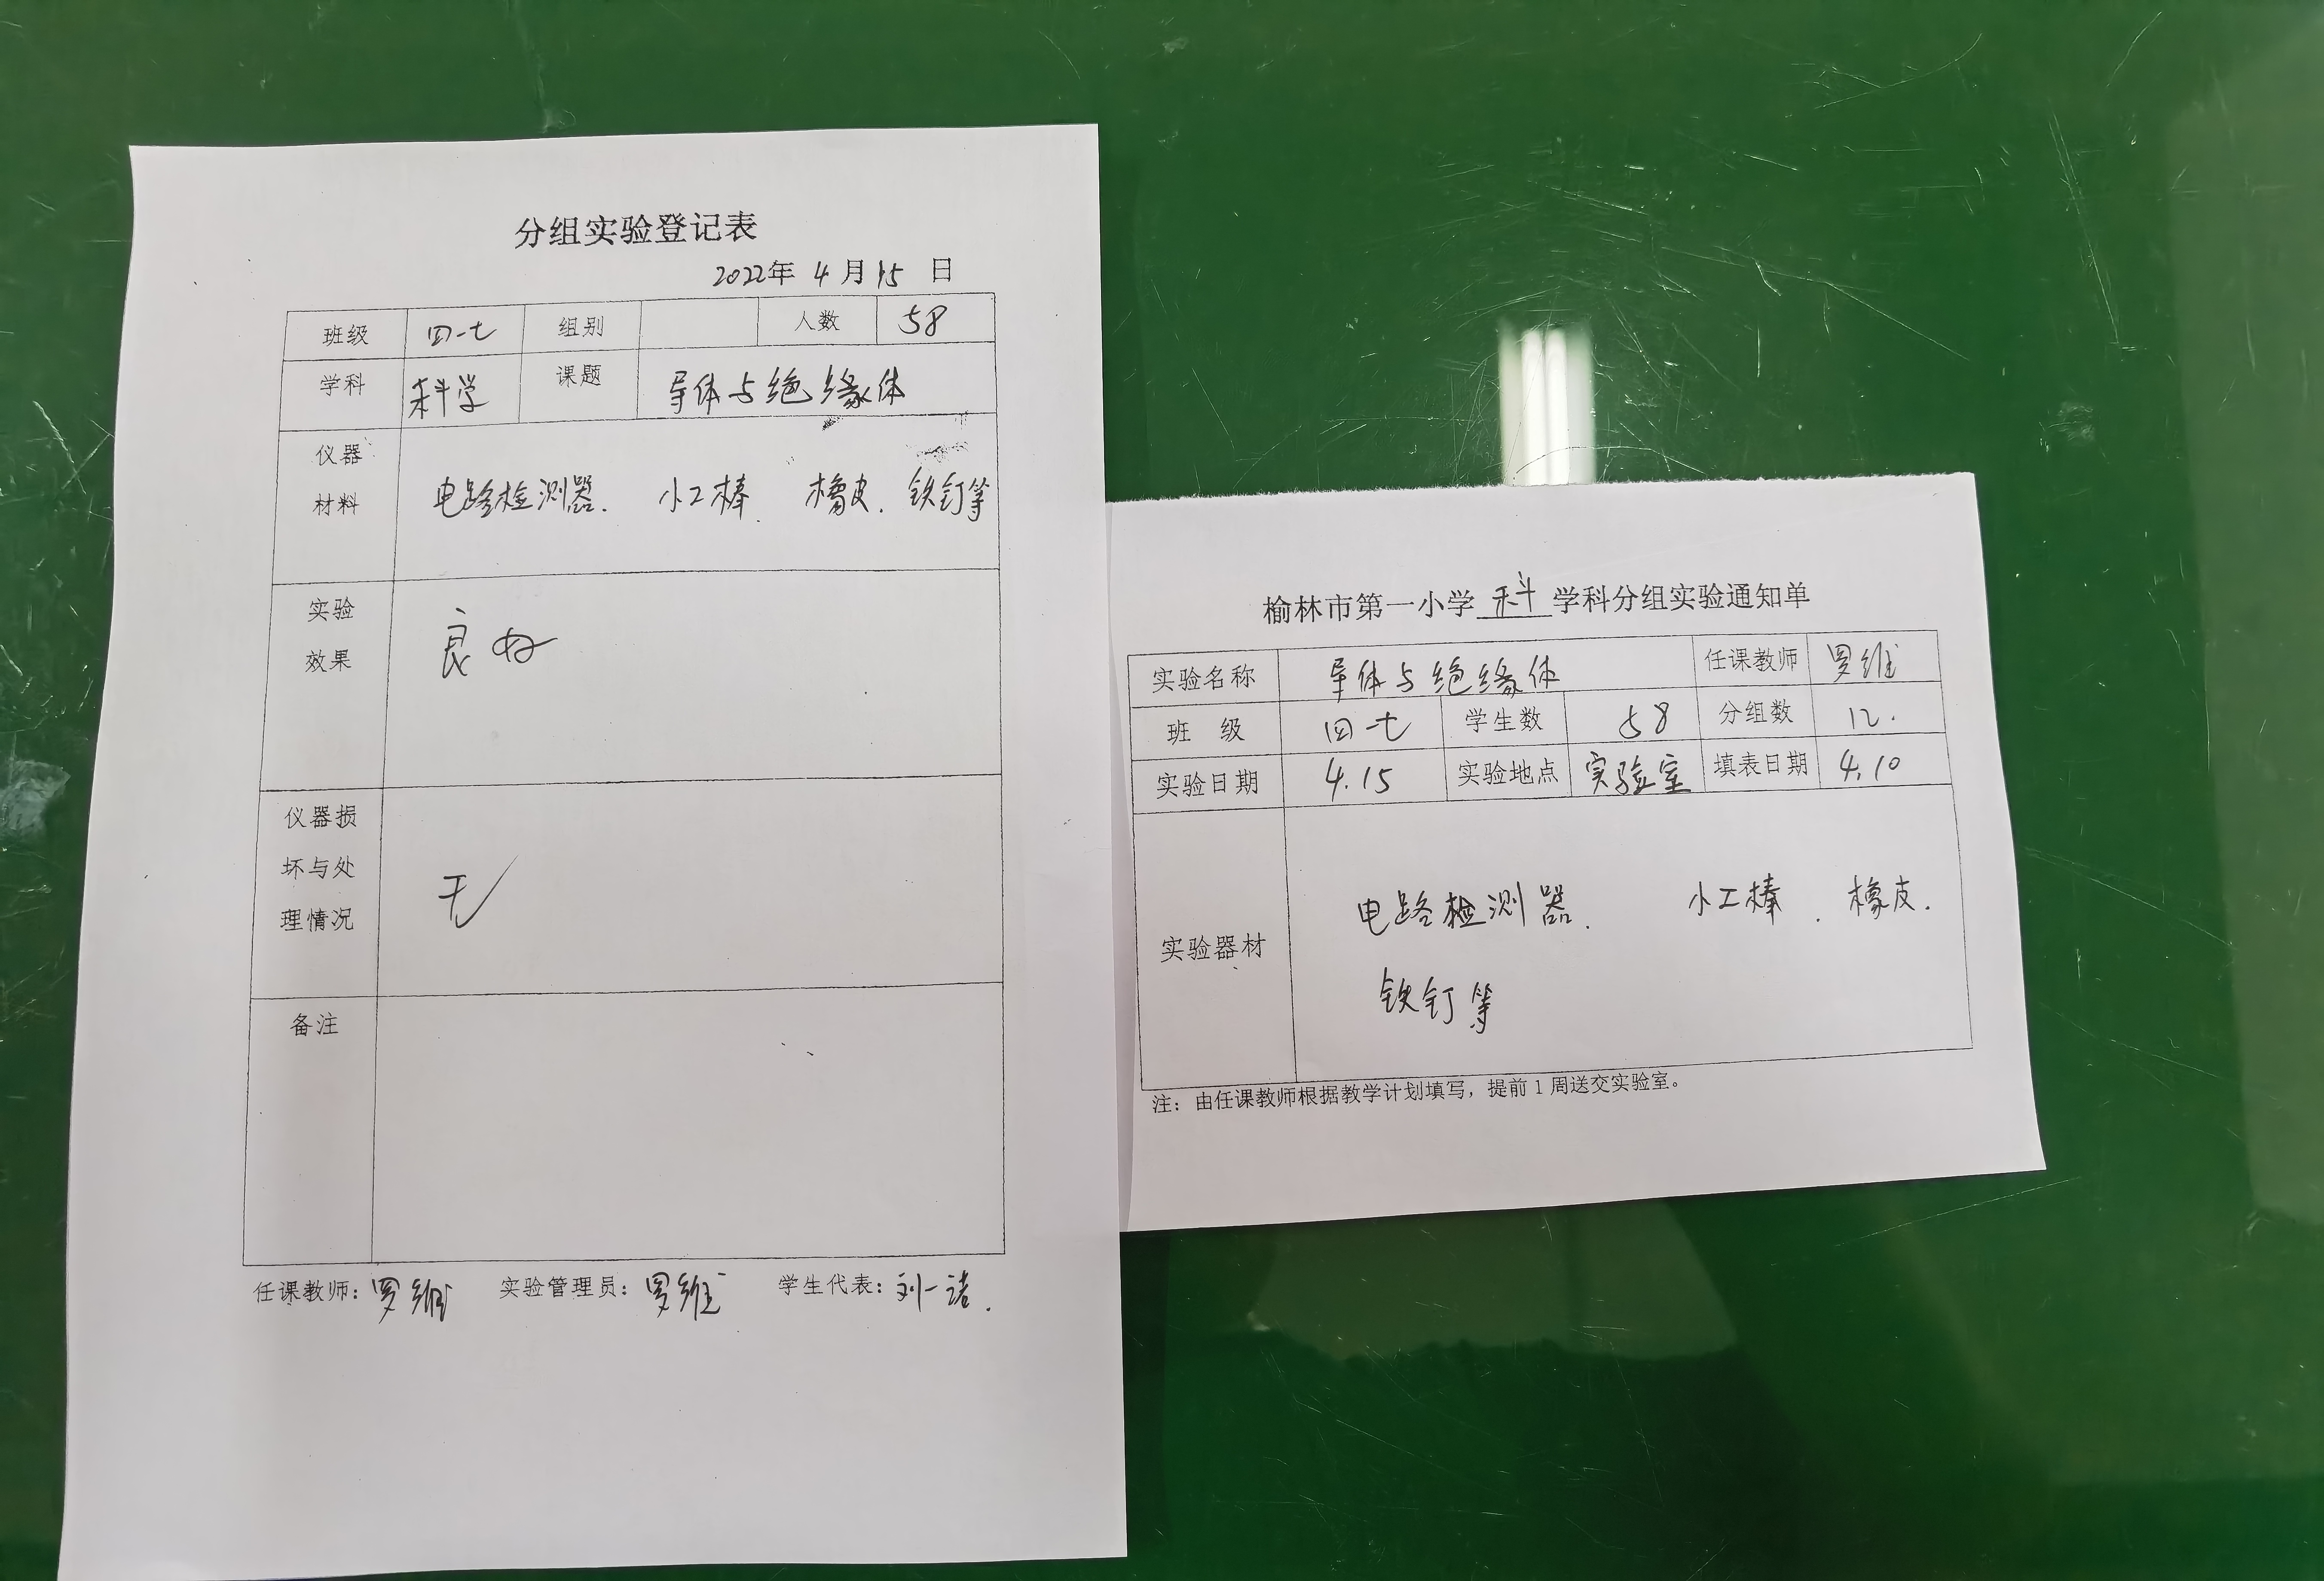 分组实验登记表
2022年 4 月 15 日
班级 四-七 组别 人数 58
学科 科学 课题 导体与绝缘体
仪器
材料
电路检测器. 小工棒. 橡皮. 铁钉等
实验
效果
良好
仪器损
坏与处
理情况
无
备注
任课教师: 罗维 实验管理员: 罗维 学生代表: 刘一诺.
榆林市第一小学 科 学科分组实验通知单
实验名称 导体与绝缘体 任课教师 罗维
班 级 四-七 学生数 58 分组数 12.
实验日期 4.15 实验地点 实验室 填表日期 4.10
实验器材
电路检测器. 小工棒. 橡皮.
铁钉等
注: 由任课教师根据教学计划填写, 提前1周送交实验室。